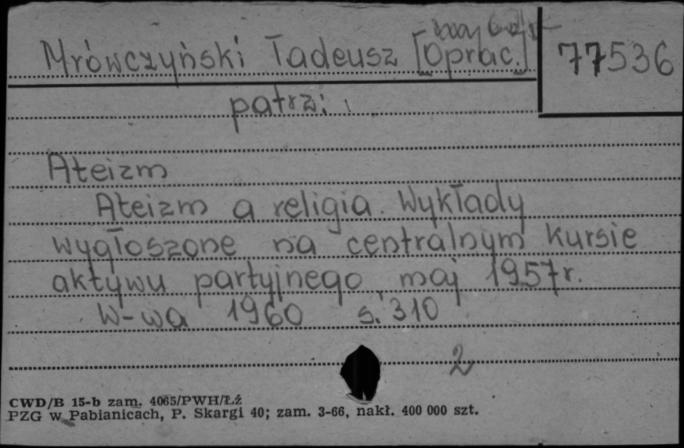 Mrówczyński Tadeusz [Oprac.] 77536
patrz:
Ateizm
Ateizm a religia. Wykłady
wygłoszone na centralnym kursie
aktywu partyjnego, maj 1957 r.
W-wa 1960 s. 310
2
CWD/B 15-b zam. 4065/PWH/Łź
PZG w Pabianicach, P. Skargi 40; zam. 3-66, nakł. 400 000 szt.